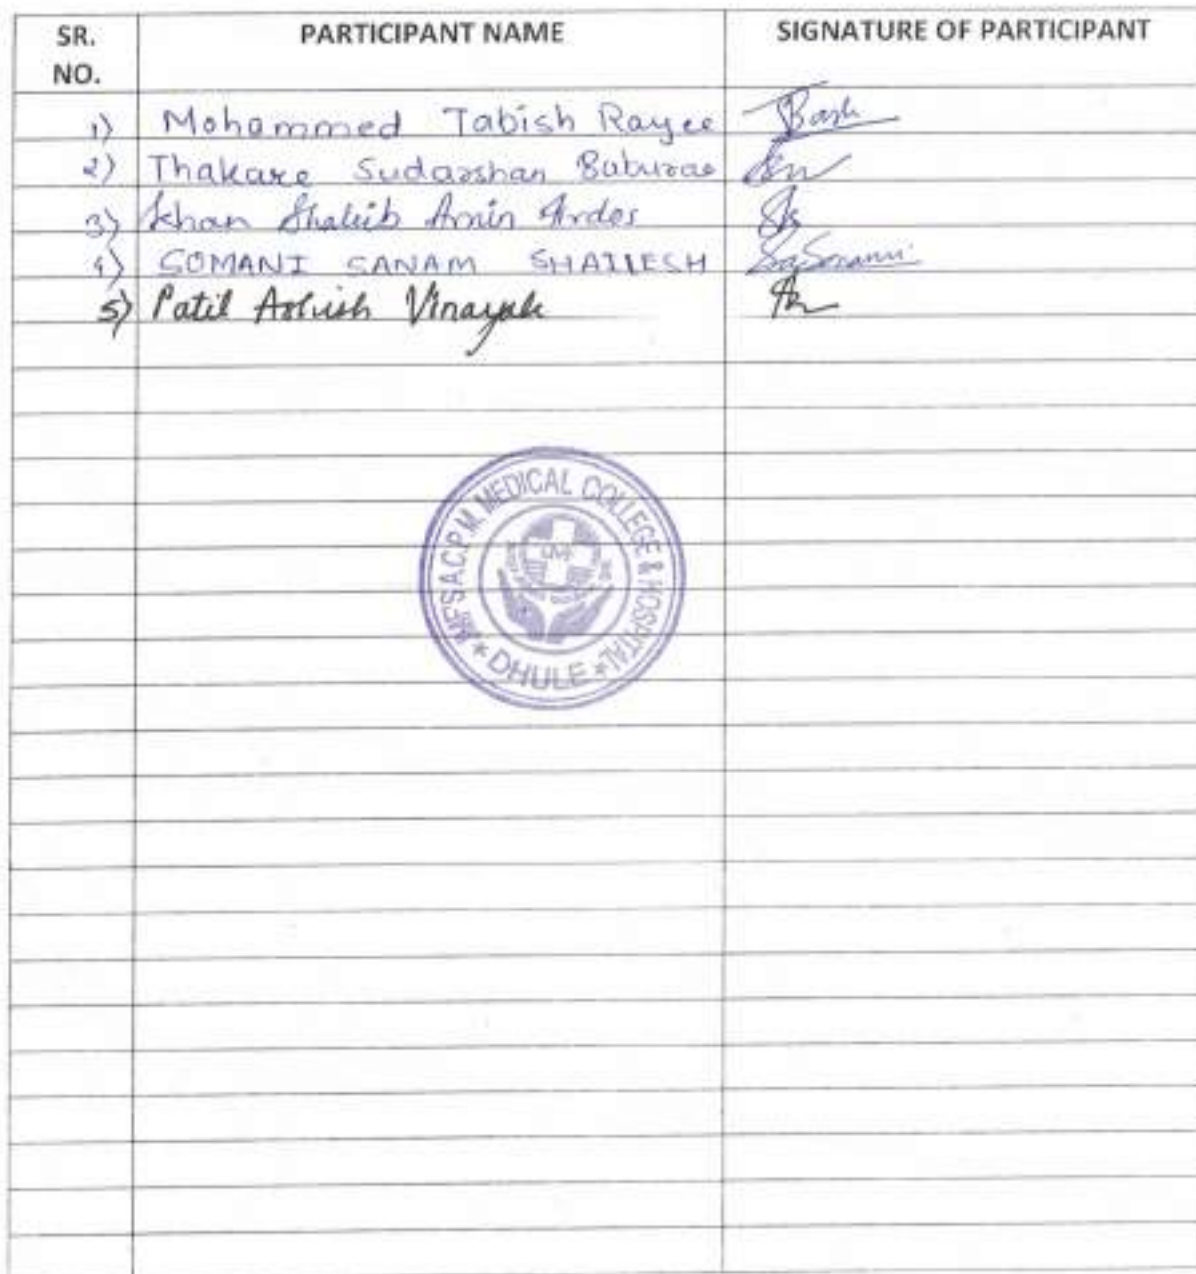 SR. NO. PARTICIPANT NAME SIGNATURE OF PARTICIPANT
1) Mohammed Tabish Rayee
2) Thakare Sudarshan Baburao
3) Khan Shakib Amin
4) SOMANI SANAM SHAILESH
5) Patil Ashish Vinayak
A.C.P.M. MEDICAL COLLEGE & HOSPITAL
* DHULE *